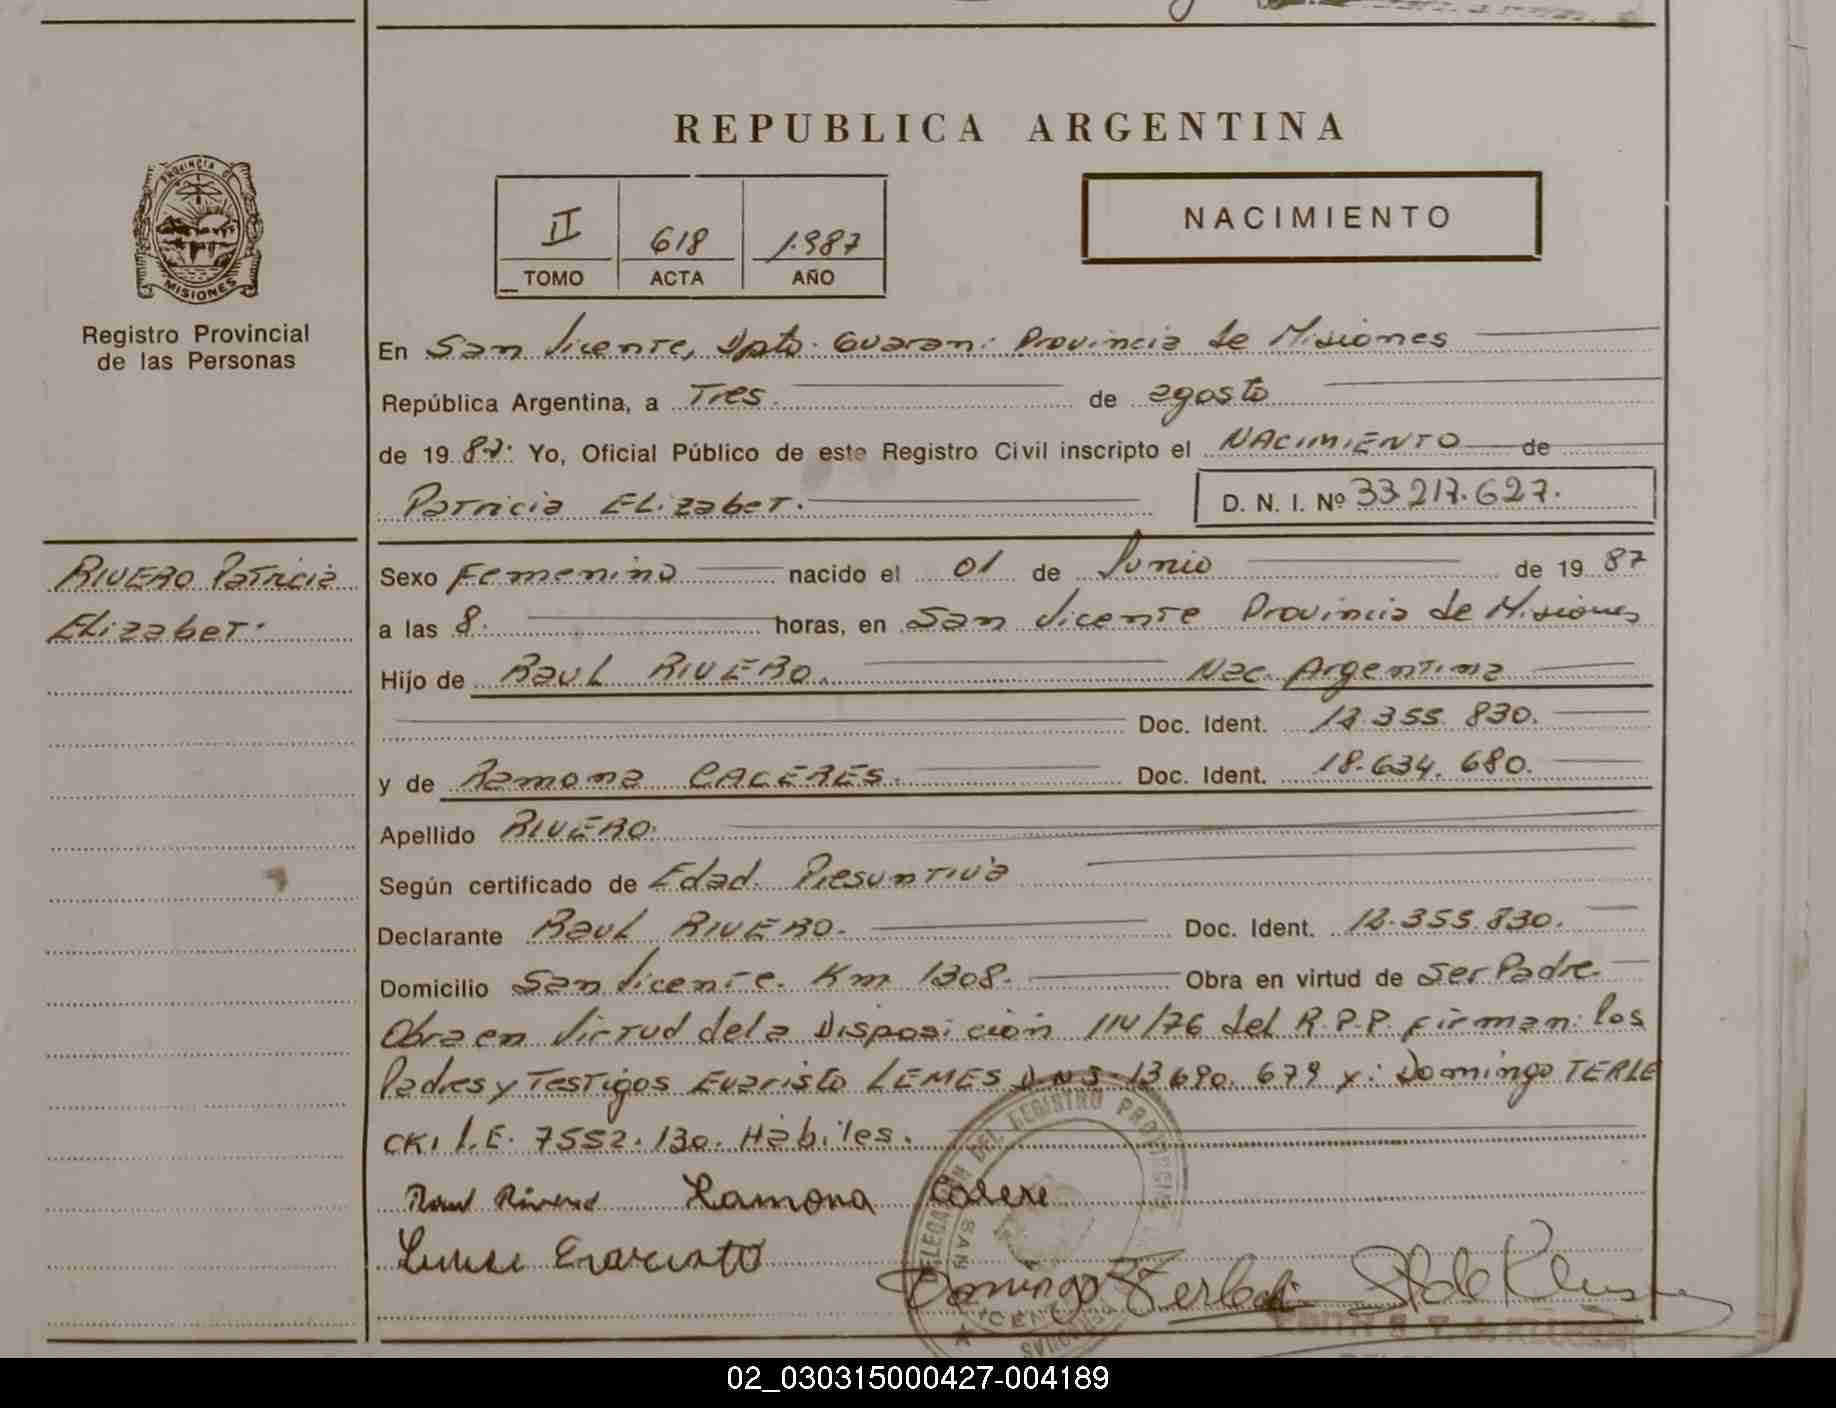 REPUBLICA ARGENTINA
PROVINCIA DE
MISIONES
Registro Provincial
de las Personas
II 618 1.987
TOMO ACTA AÑO
NACIMIENTO
En San Vicente, Dpto. Guarani Provincia de Misiones
República Argentina, a Tres. de agosto
de 19 87. Yo, Oficial Público de este Registro Civil inscripto el NACIMIENTO de
Patricia Elizabet. D. N. I. Nº 33.217.627.
RIVERO Patricia
Elizabet.
Sexo Femenino nacido el 01 de Junio de 19 87
a las 8. horas, en San Vicente Provincia de Misiones
Hijo de Raul RIVERO. Nac. Argentina
Doc. Ident. 355.830.
y de Ramona CACERES. Doc. Ident. 18.634.680.
Apellido RIVERO.
Según certificado de Edad Presuntiva
Declarante Raul RIVERO. Doc. Ident. 355.830.
Domicilio San Vicente. Km 1308. Obra en virtud de Ser Padre.
Obra en Virtud de la Disposición 114/76 del R.P.P. firman: los
Padres y Testigos Evaristo LEMES DNI 13.690.679 y: Domingo TERLE
CKI L.E. 7552.130. Hábiles.
Raul Rivero Ramona
Domingo
DEL REGISTRO PROVINCIAL
02_030315000427-004189